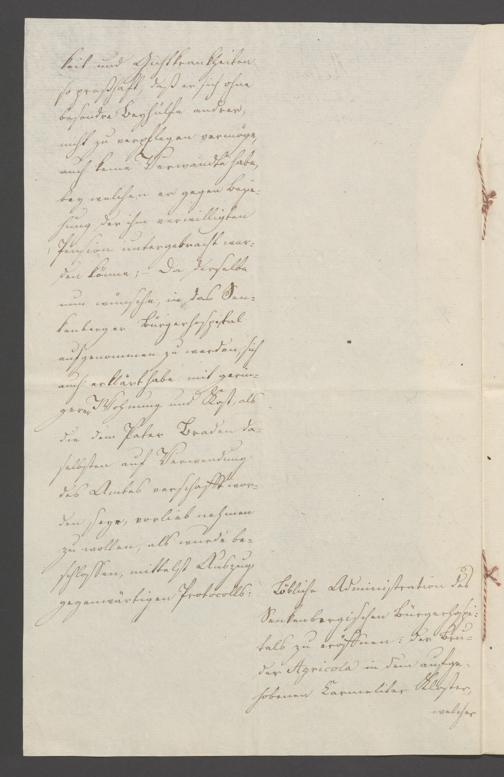 keit und Gichtkrankheiten
so preßhaft, daß er sich ohne
besondre Beyhülfe andrer,
nicht zu verpflegen vermöge,
auch keine Verwandte habe,
bey welchen er gegen Bezie-
hung der ihm verwilligten
Pension untergebracht wer-
den könne; – Da derselbe
nun wünsche, in das Sen-
kenberger Bürgerhospital
aufgenommen zu werden, sich
auch erklärt habe mit gerin-
gerer Wohnung und Kost, als
die dem Pater Braden da-
selbsten auf Verwendung
des Amtes verschafft wor-
den seye, vorlieb nehmen
zu wollen, als wurde be-
schlossen, mittelst Auszugs
gegenwärtigen Protocolls:
Löbliche Administration des
Senkenbergischen Bürgerhospi-
tals zu eröffnen: der Bru-
der Agricola in dem aufge-
hobenen Carmeliter Kloster,
welcher